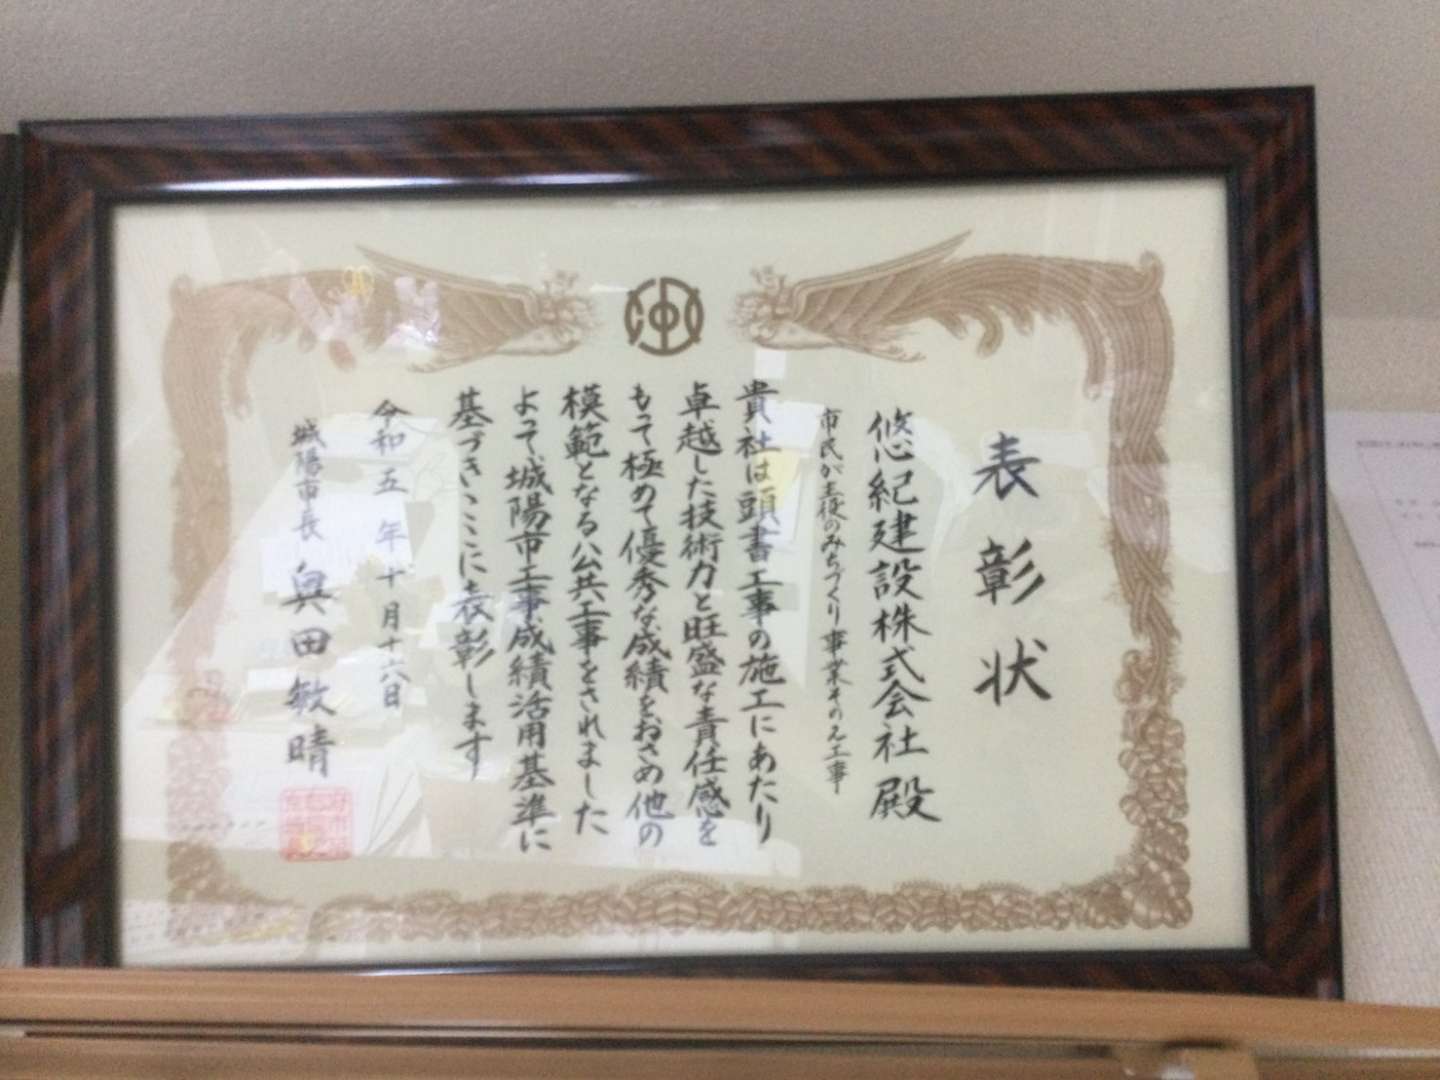 表彰状
悠紀建設株式会社 殿
市民が主役のみちづくり事業その2工事
貴社は頭書工事の施工にあたり
卓越した技術力と旺盛な責任感を
もって極めて優秀な成績をおさめ他の
模範となる公共工事をされました
よって、城陽市工事成績活用基準に
基づきここに表彰します
令和五年十月十六日
城陽市長 奥田敏晴